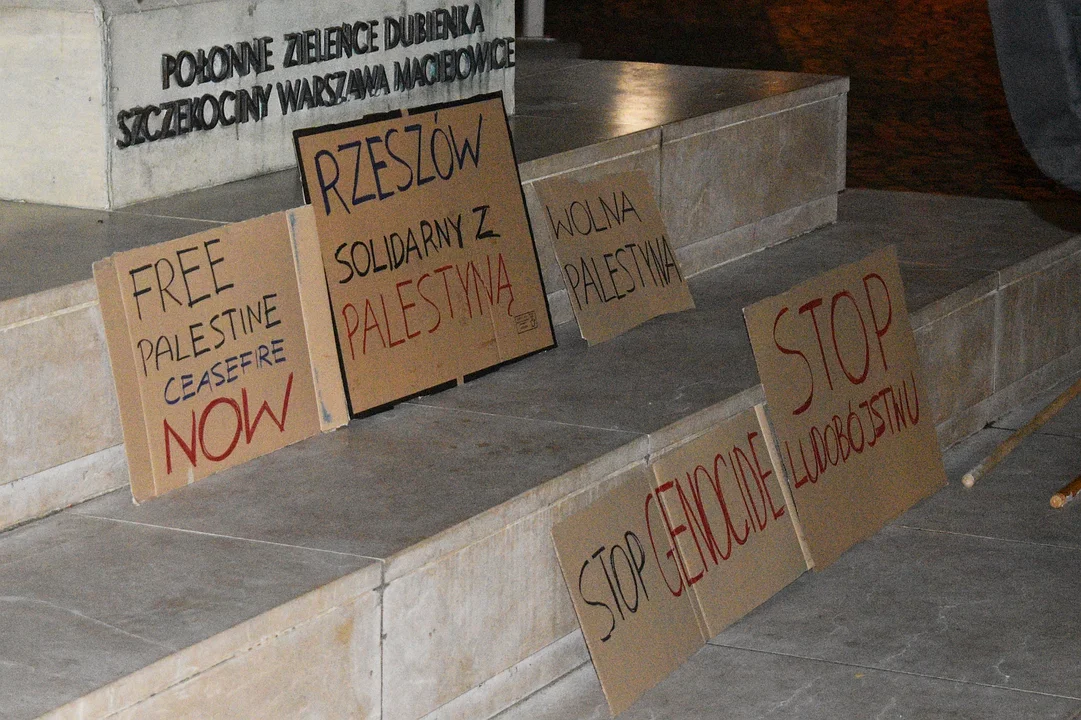 POŁONNE ZIELEŃCE DUBIENKA
SZCZEKOCINY WARSZAWA MACIEJOWICE
FREE
PALESTINE
CEASEFIRE
NOW
RZESZÓW
SOLIDARNY Z
PALESTYNĄ
WOLNA
PALESTYNA
STOP GENOCIDE
STOP
LUDOBÓJSTWU